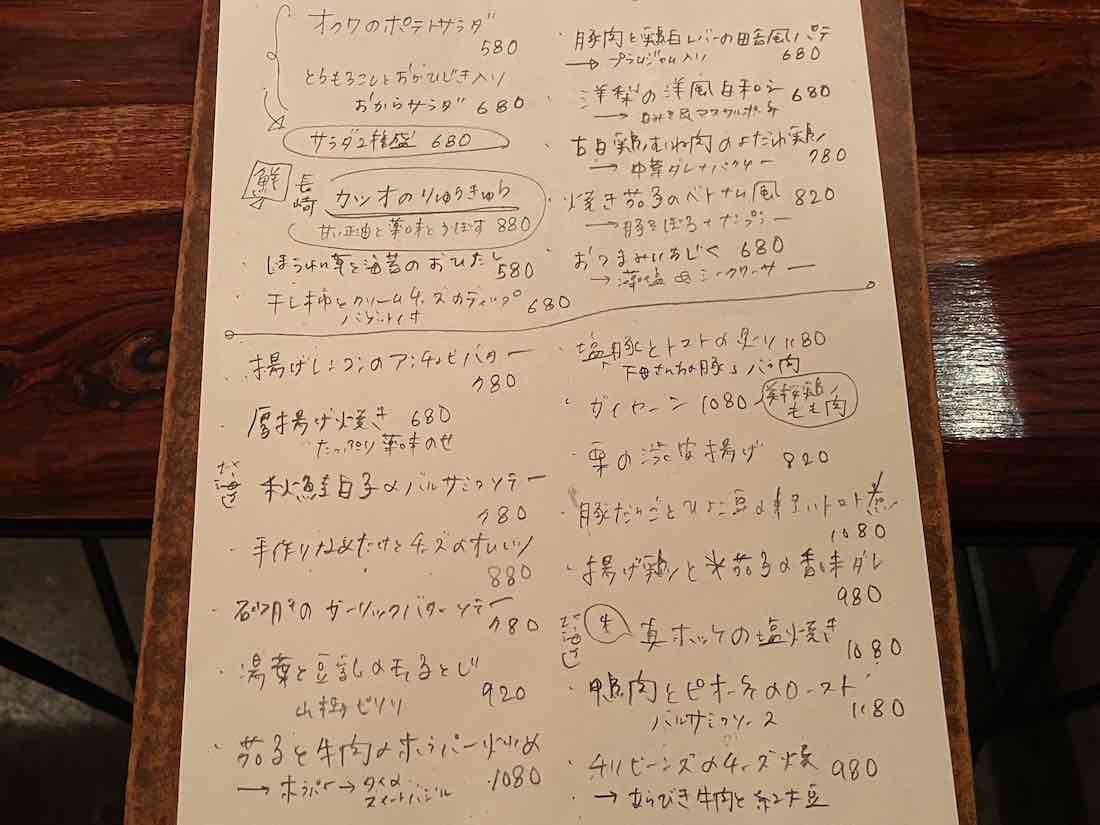 オクラのポテトサラダ
580
とうもろこしとおかひじき入り
おからサラダ 680
サラダ2種盛 680
鮮
長崎
カツオのりゅうきゅう
甘い正油と薬味とごぼす 880
・ほうれん草と海苔のおひたし
580
・干し柿とクリームチーズのディップ 680
バゲット付
・豚肉と鶏白レバーの田舎風パテ
→ プラムジャム入り 680
・洋梨の洋風白和え 680
→ マスカルポーネ
・むね肉のよだれ鶏
→ 中華ダレ パクチー 780
・焼き茄子のベトナム風 820
→ 豚そぼろ ナンプラー
・おつまみいちじく 680
→ 藻塩 シークワーサー
・揚げレンコンのアンチョビバター
780
・厚揚げ焼き 680
たっぷり薬味のせ
北海道
秋鮭白子のバルサミコソテー
780
・手作りなめたけとチーズのオムレツ
880
・砂肝のガーリックバターソテー
780
・湯葉と豆乳の玉子とじ
920
山椒ピリリ
・茄子と牛肉のホラパー炒め
1080
→ ホラパー → タイの
スイートバジル
・塩豚とトマトの炙り 1180
バラ肉
・ガイヤーン 1080
もも肉
・栗の渋皮揚げ 820
・豚だんごとひよこ豆の トマト煮
1080
・揚げ鶏と米茄子の香味ダレ
980
北海道
生
真ホッケの塩焼き
1080
・鴨肉とピオーネのロースト
バルサミコソース 1180
・チリビーンズのチーズ焼 980
・→ あらびき牛肉と紅大豆